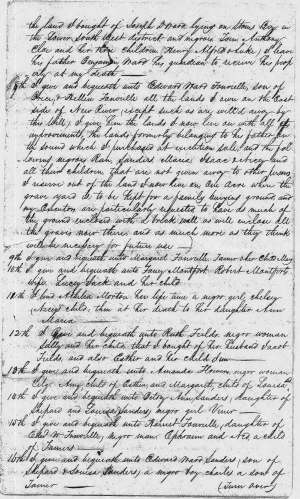 the land I bought of Joseph Ward lying on Stones Bay in
the Lower South West district and negroes Tom, Anthony
Cloe and her children Henry Alfred I leave
his father Benjamin Ward his guardian to receive his prop
erty at my death —
8th I give and bequeath unto Edward Ward Fonville, son of
Brice Fonville all the lands I own on the East
side of New River (except such as are will'd away by
this Will) I give him the lands I now live on with all
improvements, the lands formerly belonging to his father on
the sound which I purchased at execution sale, and the fol
lowing negroes Sanders Maria Isaac & Nicey and
all their children that are not given away to other persons,
I reserve out of the land I now live on One Acre where the
grave yard is to be kept for a family burying ground, and
my Executors are particularly requested to have as much of
the ground enclosed with a brick wall as will enclose all
the graves now there and as much more as they think
will be necessary for future use —
9th I give and bequeath unto Margaret Fonville, Tamor her child
10th I give and bequeath unto Montfort Robert Montfort
Wife, Lucy Jack and her child
11th I lend Athelia Morton her life time a negro girl, Chelsey
(Nicey child) then at her death to her daughter Ann
Maria
12th I give and bequeath unto Ruth Fields, negro woman
Silly and her child, that I bought of her husband Jacob
Fields, and also Esther and her child
13th I give and bequeath unto Amanda negro woman
Lily, Amy child of Esther, and Margaret, child of
14th I give and bequeath unto Betsy Ann Sanders, daughter of
Shepard and Louisa Sanders, negro girl
15th I give and bequeath unto Harriet Fonville, daughter of
Fonville, negro man Ephraim and Ned a child
of Tamor
16th I give and bequeath unto Edward Ward Sanders, son of
Shepard & Louisa Sanders, a negro boy Charles a son of
Tamor —
(turn over)